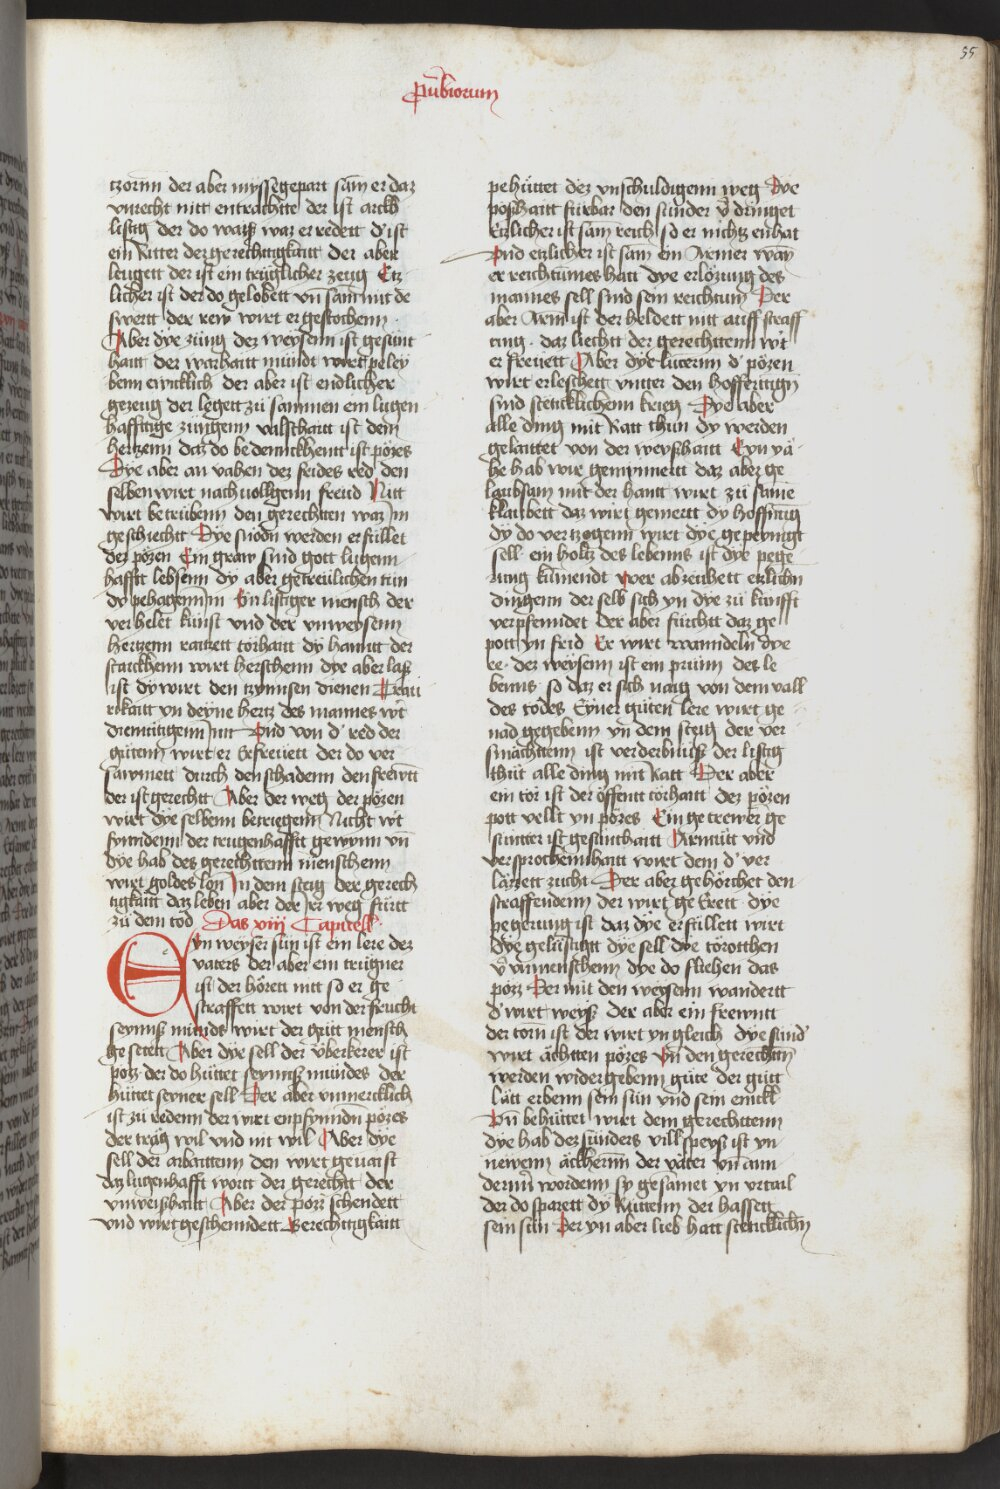 55
Prouͤbiorum
tzornn der aber myssegepart sam er daz
vnrecht nitt entrachtte der ist arckh
listig der do waiß waz er redett d' ist
ein Ritter der gerechtigkaitt der aber
leugett der ist ein trüglicher zeug Etz
licher ist der do gelobett vn̄ sam mit de
swertt der rew wirt er gestochenn
Aber dye züng der weysenn ist gesunt
haitt der warhaitt mündt wirt peley
benn ewicklich der aber ist endlicher
gezeug der legett zü sammen ein lugen
hafftige züngenn valschaitt ist dem
hertzenn daz do bedennckhentt ist pözes
Dye aber an vahen dez frides red den
selben wirt nach vollgenn freud Nitt
wirt betrübenn den gerechtten waz jm
geschiechtt Dye snödn werden erfüllet
dez pözen Ein graw sind gott lugenn
hafftt lebsenn dy aber getreülichen tün
dy behagennn jm Ein listiger mensch der
verhelet künst vnd der vnweysenn
hertzenn raitzett törhaitt dy hanntt der
starckhenn wirt herschenn dye aber laß
ist dy wirt den tzynnsen dienen Trau
rikaitt yn deyne hertz des mannes w't
diemütigenn jm Vnd von d' red der
gütenn wirt er erfreuett der do ver
sawmett durch den schadenn den frewntt
der ist gerechtt Aber der weg der pözen
wirt dye selbenn betriegenn Nicht w't
fynndenn der trugenhafftt gewynn vn̄
dye hab des gerechttenn menschenn
wirt goldes lon Jn dem steig der gerech
tigkaitt daz leben aber der jrr weg fürtt
zü dem tod Das xiij Capitell
Eyn weyser sün ist ein lere dez
vaters der aber ein trügner
ist der hörett nitt so er ge
straffett wirt von der frücht
seyniß münds wirt der gütt mensch
gesetett Aber dye sell der vberkerer ist
pöz der do hüttet seyniß mündes der
hüttet seyner sell Der aber vnmercklich
ist zü redenn der wirt enpfynndn pözes
der träg wil vnd nit wil Aber dye
sell der arbaittenn den wirt gevaist
daz lugenhafft wortt der gerechtt der
vnweißhaitt Aber der pöz schendett
vnd wirt geschenndett Gerechtigkaitt
pehüttet dez vnschuldigenn weg Dye
poßhaitt fürbar den sünder v'dringet
Etzlicher ist sam reich so er nichtz enhat
Vnd etzlicher ist sam ein Armer wan
er reichtümes hatt dye erlözung des
mannes sell sind sein reichtum Der
aber Arm ist der heldett nitt auff straff
ung. daz liechtt der gerechttenn w't
er freuett Aber dye lucernn d' pözen
wirt erleschett vntter den hoffertign
sind stettcklichenn krieg Dye aber
alle ding mit Ratt thün dy werden
gelaittet von der weyßhaitt Eyn yä
he hab wir geminnertt daz aber ge
laubsam mit der hantt wirt zü same
klaubett daz wirt gemertt dy hoffnüg
dy do vertzogenn wirt dye gepeynigt
sell. ein holtz des lebenns ist dye pege
rung kümendt Wer abzeubett etzlichn
dingenn der selb sich yn dye zü künfft
verpfenndet der aber fürchtt daz ge
pott yn frid Er wirt wanndeln dye
ee. der weysenn ist ein prünn des le
benns so daz er sich naig von dem vall
des todes Eyner güten lere wirt ge
nad gegebenn yn dem steig der ver
smächttenn ist verderbnuß der listig
thüt alle ding mit Ratt Der aber
ein tör ist der öffentt törhaitt dez pözen
pott vellt yn pözes Ein getrewer ge
sünter ist gesünthaitt Armütt vnd
versprochennhaitt wirt dem d' ver
läzzett zücht Der aber gehörchet den
straffendenn der wirt geErett dye
pegerung ist daz dye erfüllett wirt
dye gelüstigtt dye sell dye törotthen
v' vnmenschenn dye do fliehen das
pözz Der mit den weysenn wandertt
d' wirt weyß der aber ein frewntt
der torn ist der wirt yn gleich dye sünd'
wirt ächtten pözes Vn̄ den gerechttn
werden widergebenn güte der gütt
lätt erbenn sein sün vnd sein enickl
Vn̄ behüttet wirt dem gerechttenn
dye hab dez sünders vill speyß ist yn
newenn äckhernn der väter vn̄ ann
dernn wordenn sy gesamet yn vrtail
der do sparett dy Rüttenn der hassett
sein sün Der yn aber lieb hatt stettcklichn